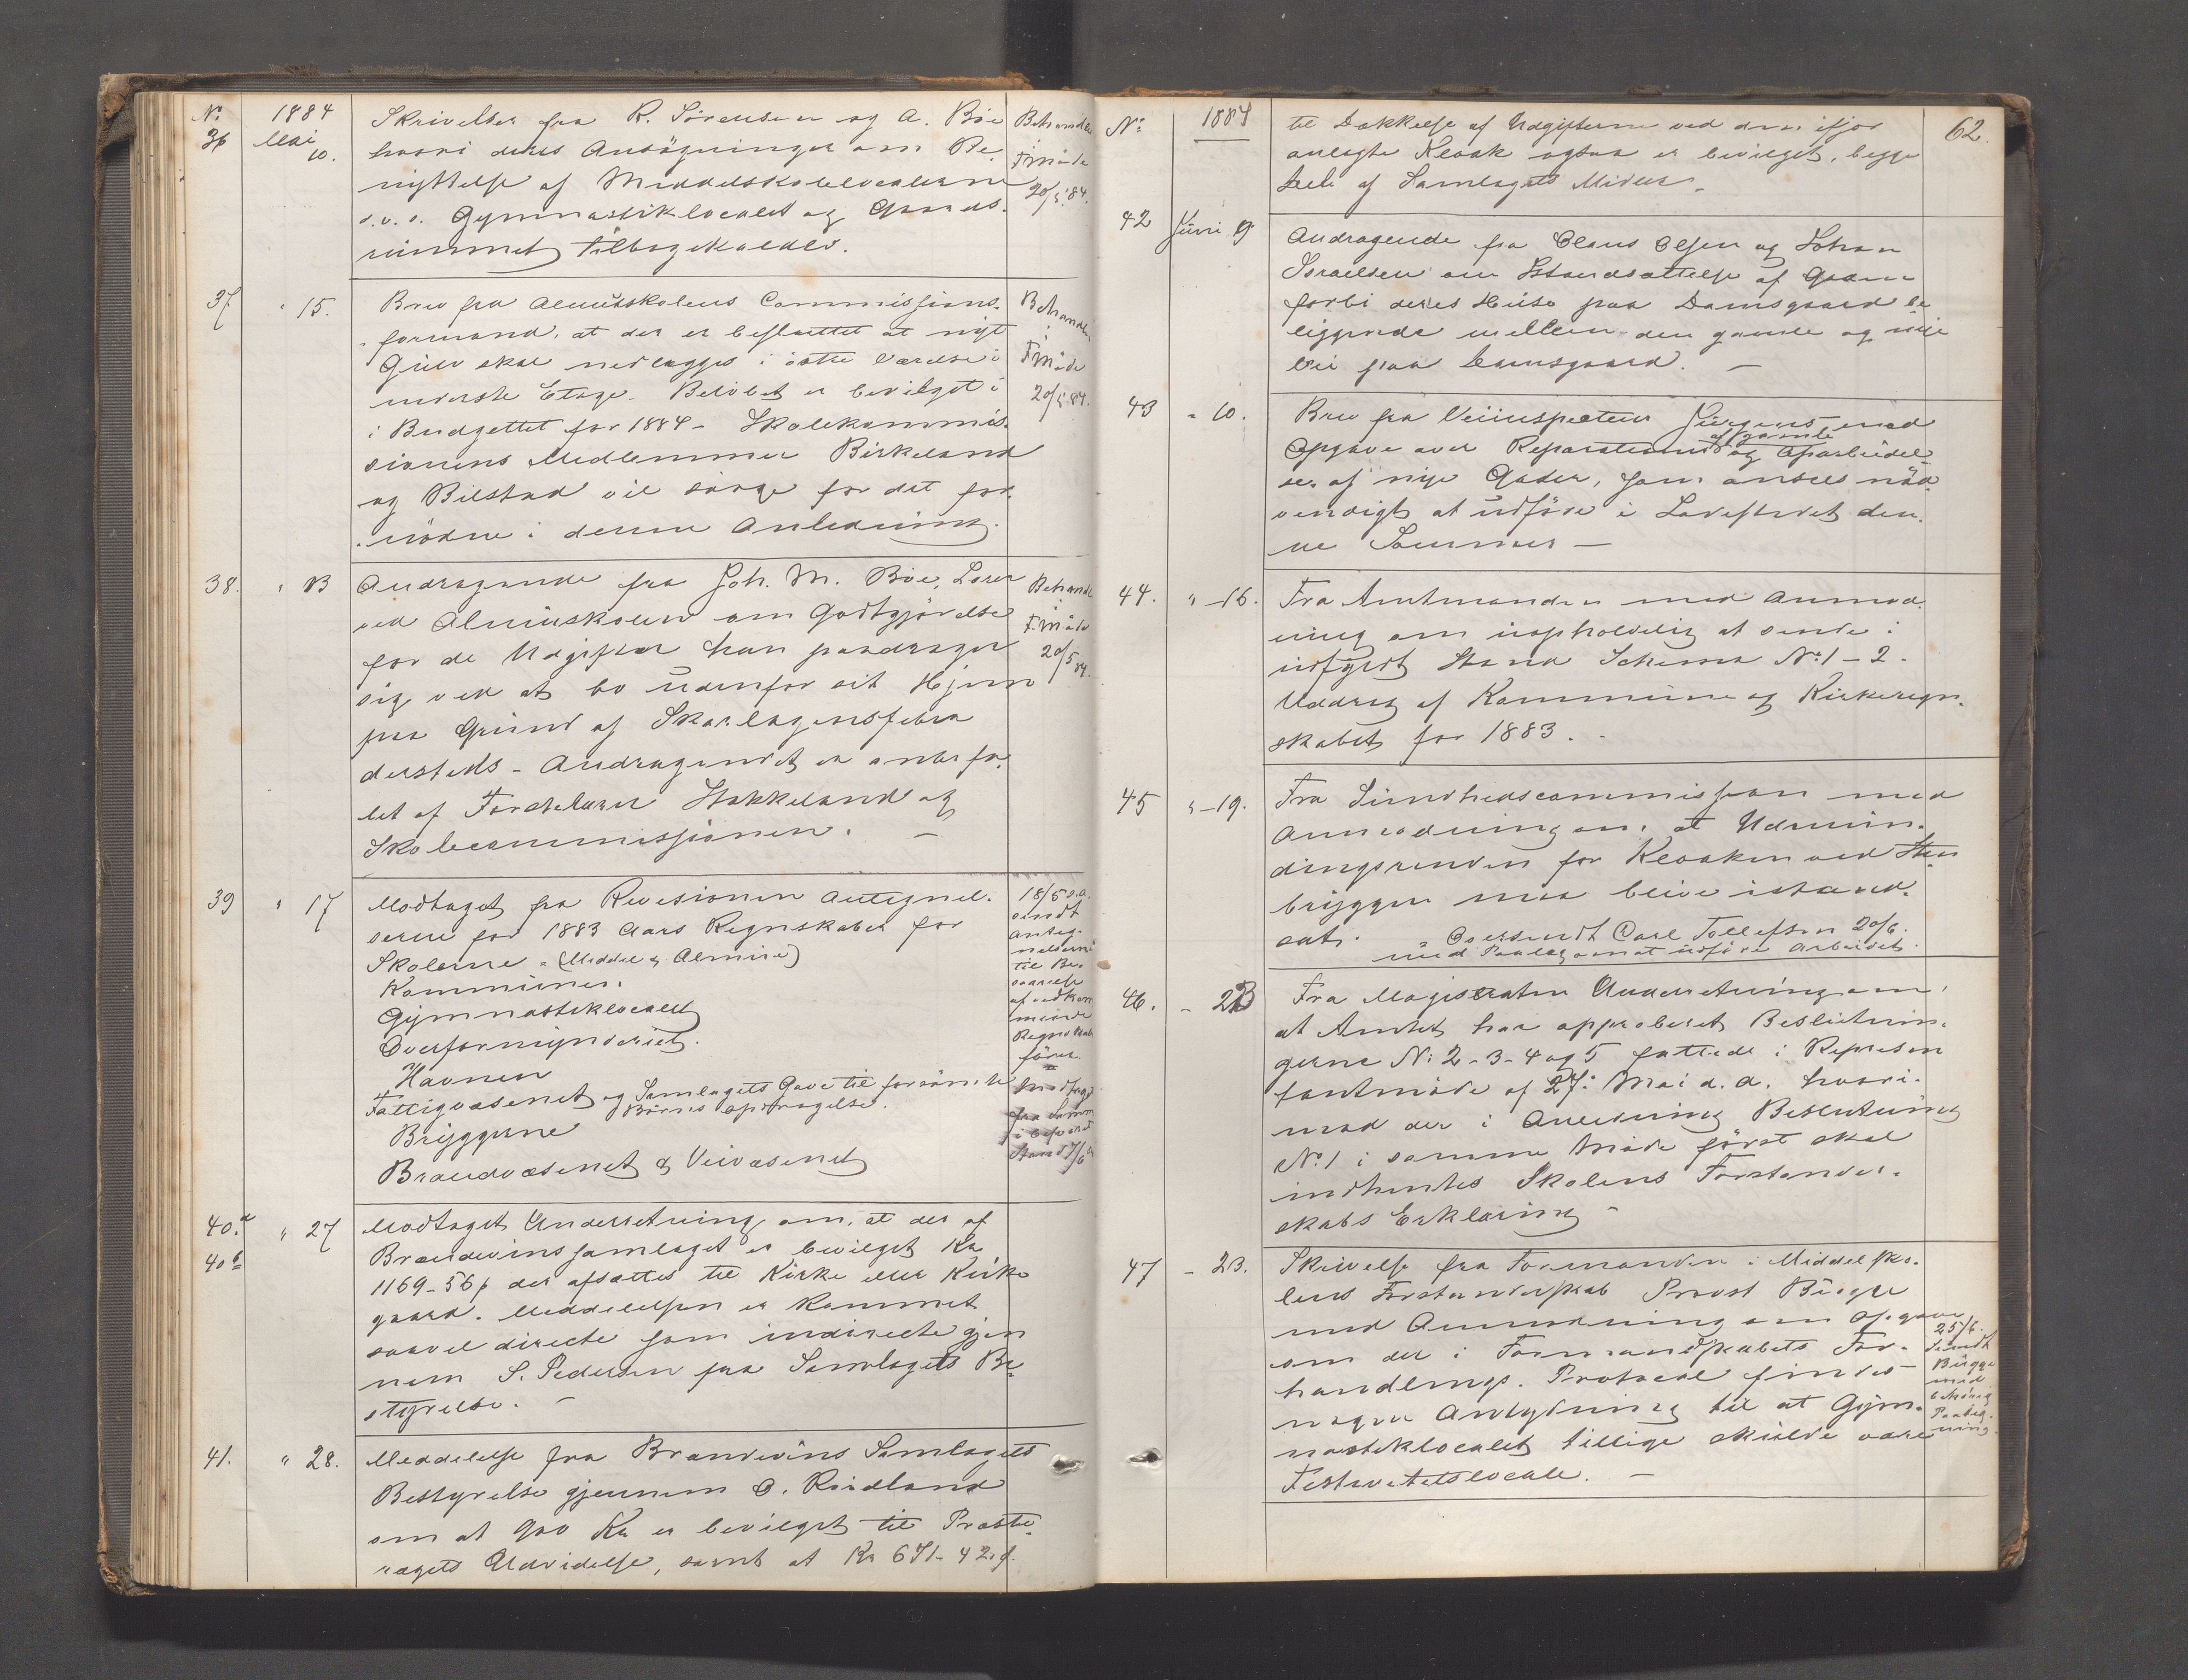 Nº 1884
36 Mai 10. Skrivelser fra R. Sörensen og A. Böe
hvori deres Ansögninger om Be-
nyttelse af Middelskolelocalerne
d.v.s. Gymnastiklocalet og
rummet tilbagekaldes.
Behandlet i F.möde 20/5 84.
37 " 15. Brev fra Almuskolens Commissions-
formand, at der er besluttet at nyt
Gulv skal nedlægges i östre Værelse i
nederste Etage. Belöbet er bevilget i
i Budgettet for 1884 - Skolekommis-
sionens Medlemmer Birkeland
og Bilstad vil sörge for det for-
nödne i denne Anledning.
Behandlet i F.Möde 20/5 84.
38. " 13 Andragende fra Joh. M. Böe, Lærer
ved Almuskolen om Godtgjörelse
for de Udgifter han paadrager
sig ved at bo udenfor sit Hjem
paa Grund af Skarlagensfeber
dersteds - Andragendet er anbefa-
let af Förstelærer Stokkeland og
Skolecommissionen. -
Behandlet i F.Möde 20/5 84.
39 " 17 Modtaget fra Revisionen Antegnel-
serne for 1883 Aars Regnskaber for
Skolerne - (Middel & Almue)
Kommunen.
Gymnastiklocalet
Overformynderiet.
Havnen
Fattigvæsenet og Samlagets Gave til forsömte
Börns Opdragelse.
Bryggerne
Brandvæsenet & Veivæsenet
18/5 d.a.
sendt
Anteg-
nelserne
til Be-
svarelse
af vedkom
mende
Regnskabs
förer.
Modtaget
fra Samme
i besvaret
Stand 7/6
40.a " 27 Modtaget Underretning om, at der af
40 b Brændevinssamlaget er bevilget Kr
1169-56 der afsættes til Kirke eller Kirke
gaard. Meddelelsen er kommet
saavel directe som indirecte gjen
nem S. Pedersen fra Samlagets Be-
styrelse. -
41. " 28. Meddelelse fra Brændevins Samlagets
Bestyrelse gjennem O. Rödland
om at 900 Kr er bevilget til Præste-
Udvidelse, samt at Kr 671-42
Nº 1884 62.
til Dækkelse af Udgifterne ved den ifjor
anlagte Kloak ogsaa er bevilget, begge
Dele af Samlagets Midler.
42 Juni 9 Andragende fra Claus Olsen og Johan
Israelsen om Istandsættelse af Gaden
forbi deres Huse paa Damsgaard be
liggende mellem den gamle og nye
Vei paa Damsgaard. -
43 " 10. Brev fra Veiinspecteur Jürgens med
af gamle
Opgave over Reparationer og Oparbeidel-
ser af nye Gader, som ansees nöd-
vendigt at udföre i Ladestedet den-
ne Sommer -
44. " -16. Fra Amtmanden med Anmod-
ning om uopholdelig at sende i
udfyldt Stand Schema Nº 1-2.
Uddrag af Kommune og Kirkeregn-
skabet for 1883. -
45 " -19. Fra Sundhedscommissionen med
Anmodning om, at Udmun-
dingsrenden for Kloaken ved Sten
bryggen maa blive istand-
sat. - Oversendt Carl Tollefsen 20/6.
med Paalæg om at udföre Arbeidet.
46. - 23 Fra Magistraten Underretning om,
at Amtet har approberet Beslutnin-
gerne Nº 2-3-4 og 5 fattede i Represen
tantmöde af 27: Mai d.a. hvori-
mod der i Anledning Beslutning
Nº 1 i samme Möde först skal
indhentes Skolens Forstander-
skabs Erklæring -
47 - 23. Skrivelse fra Formanden i Middelsko-
lens Forstanderskab Provst Bugge
med Anmodning om Opgave
om der i Formandskabets For-
handlings-Protocol findes
nogen Antydning til at Gym-
nastiklocalet tillige skulde være
Festivitetslocale. -
25/6.
sendt
Bugge
med
behörig
Paateg-
ning.